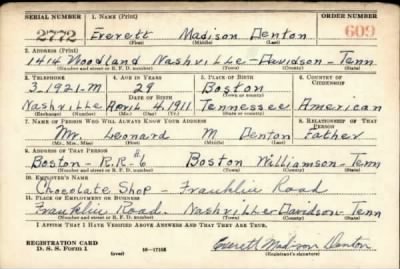 SERIAL NUMBER 1. NAME (Print) ORDER NUMBER
2772 Everett Madison Denton 609
(First) (Middle) (Last)
2. ADDRESS (Print)
1414 Woodland Nashville-Davidson-Tenn
(Number and street or R. F. D. number) (Town) (County) (State)
3. TELEPHONE 4. AGE IN YEARS 5. PLACE OF BIRTH 6. COUNTRY OF CITIZENSHIP
3-1921-M 29 Boston
DATE OF BIRTH (Town or county)
Nashville April 4, 1911 Tennessee American
(Exchange) (Number) (Mo.) (Day) (Yr.) (State or country)
7. NAME OF PERSON WHO WILL ALWAYS KNOW YOUR ADDRESS 8. RELATIONSHIP OF THAT PERSON
Mr. Leonard M Denton Father
(Mr., Mrs., Miss) (First) (Middle) (Last)
9. ADDRESS OF THAT PERSON
Boston - R.R. #6 Boston Williamson-Tenn
(Number and street or R. F. D. number) (Town) (County) (State)
10. EMPLOYER'S NAME
Chocolate Shop - Franklin Road
11. PLACE OF EMPLOYMENT OR BUSINESS
Franklin Road. Nashville-Davidson-Tenn
(Number and street or R. F. D. number) (Town) (County) (State)
I AFFIRM THAT I HAVE VERIFIED ABOVE ANSWERS AND THAT THEY ARE TRUE.
REGISTRATION CARD
D. S. S. Form 1 (over) Everett Madison Denton
(Registrant's signature)